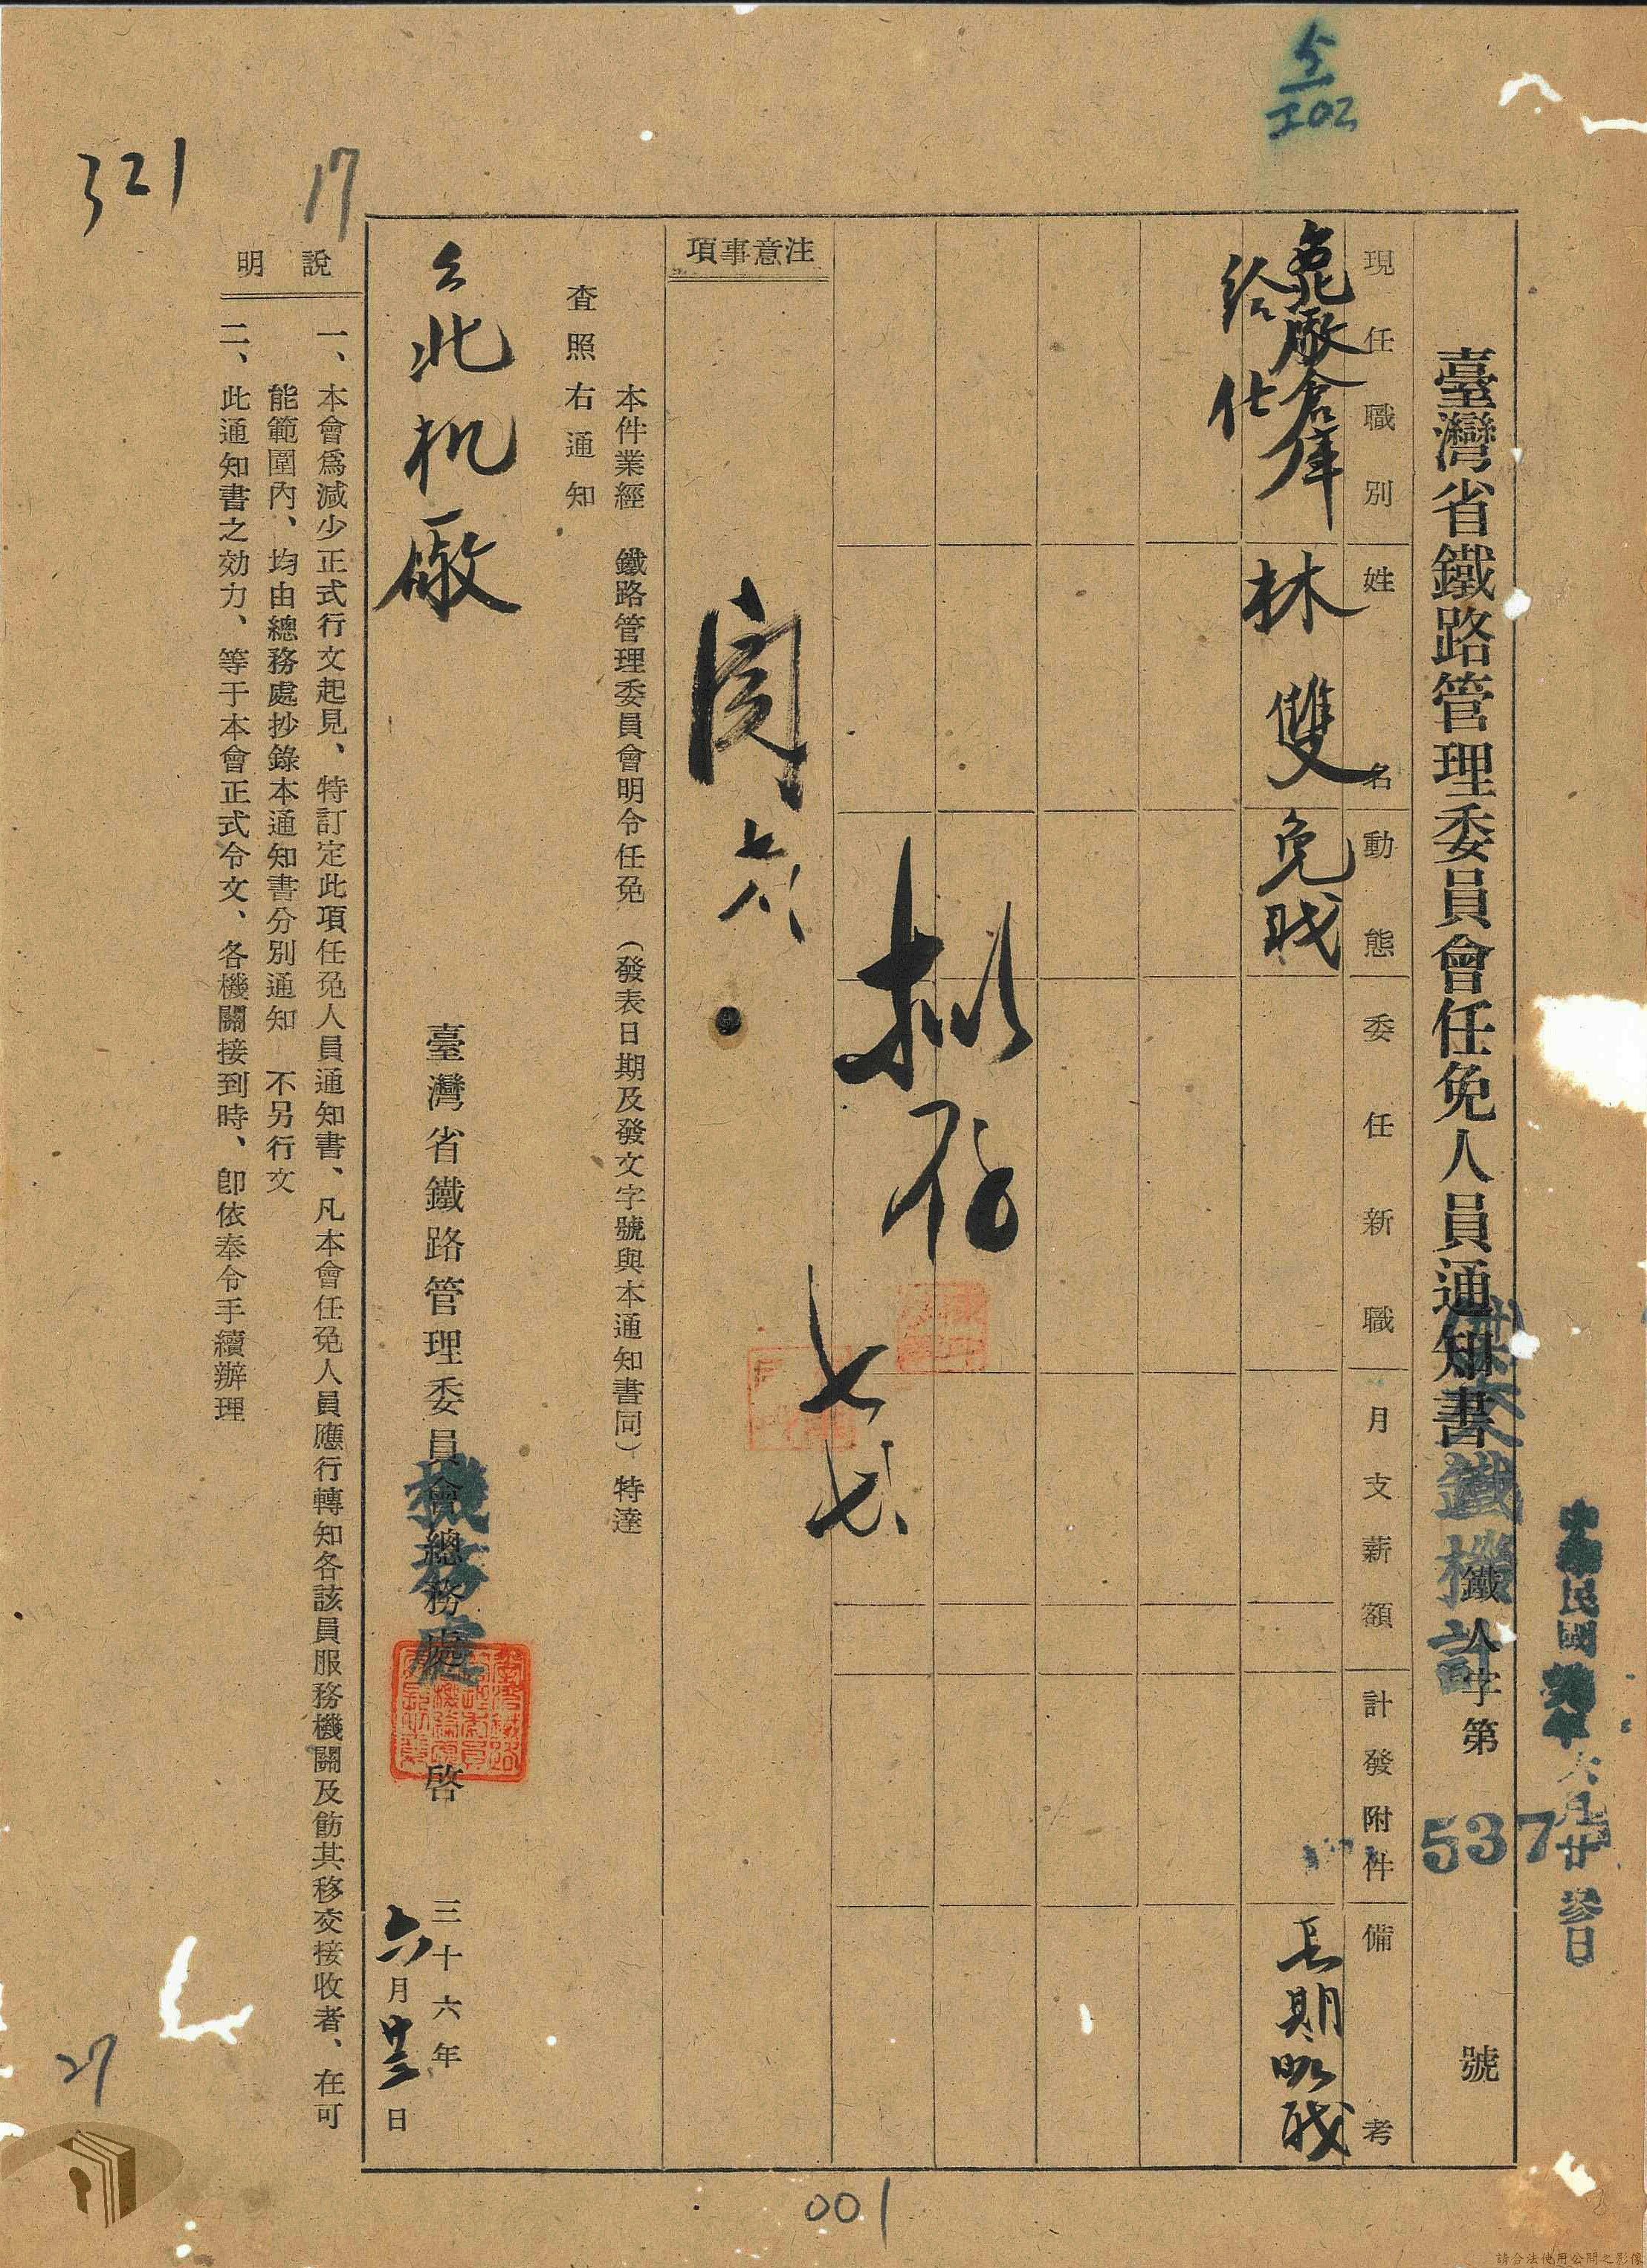 5/202
臺灣省鐵路管理委員會任免人員通知書
鐵人字第 537 號
鐵機計
中華民國 六月廿參日
現任職別
姓名
動態
委任新職
月支薪額
計發附件
備考
北廠倉庫
給仕
林雙
免職
長期曠職
擬存
七七
注意事項
閱
七八
本件業經 鐵路管理委員會明令任免 (發表日期及發文字號與本通知書同) 特達
查照右通知
台北机廠
臺灣省鐵路管理委員會總務處 啓
機務處
三十六年
六月廿三日
說明
一、本會爲減少正式行文起見、特訂定此項任免人員通知書、凡本會任免人員應行轉知各該員服務機關及飭其移交接收者、在可
能範圍內、均由總務處抄錄本通知書分別通知 不另行文
二、此通知書之効力、等于本會正式令文、各機關接到時、卽依奉令手續辦理
17
321
27
001
請合法使用公開之影像